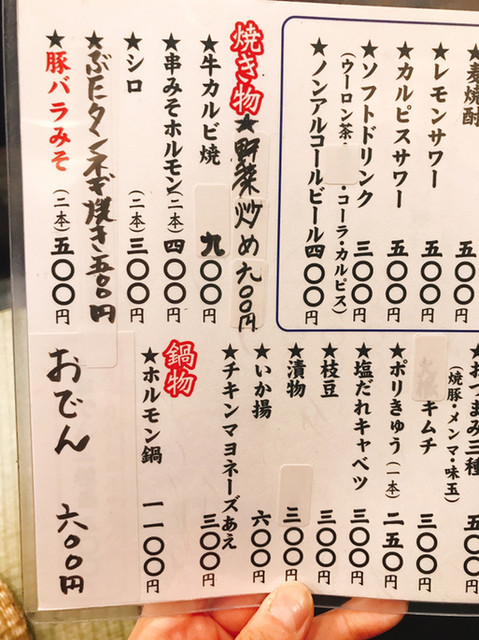 麦焼酎 五〇
★レモンサワー 五〇〇円
★カルピスサワー 五〇〇円
★ソフトドリンク 三〇〇円
(ウーロン茶・コーラ・カルピス)
★ノンアルコールビール 四〇〇円
焼き物
★野菜炒め 九〇〇円
★牛カルビ焼 九〇〇円
★串みそホルモン(二本) 四〇〇円
★シロ (二本) 三〇〇円
★ぶたタンネギ焼き 五〇〇円
★豚バラみそ (二本) 五〇〇円
★おつまみ三種 五〇
(焼豚・メンマ・味玉)
キムチ 三〇〇円
★ポリきゅう(一本) 二五〇円
★塩だれキャベツ 三〇〇円
★枝豆 三〇〇円
★漬物 三〇〇円
★いか揚 六〇〇円
★チキンマヨネーズあえ 三〇〇円
鍋物
★ホルモン鍋 一一〇〇円
おでん 六〇〇円